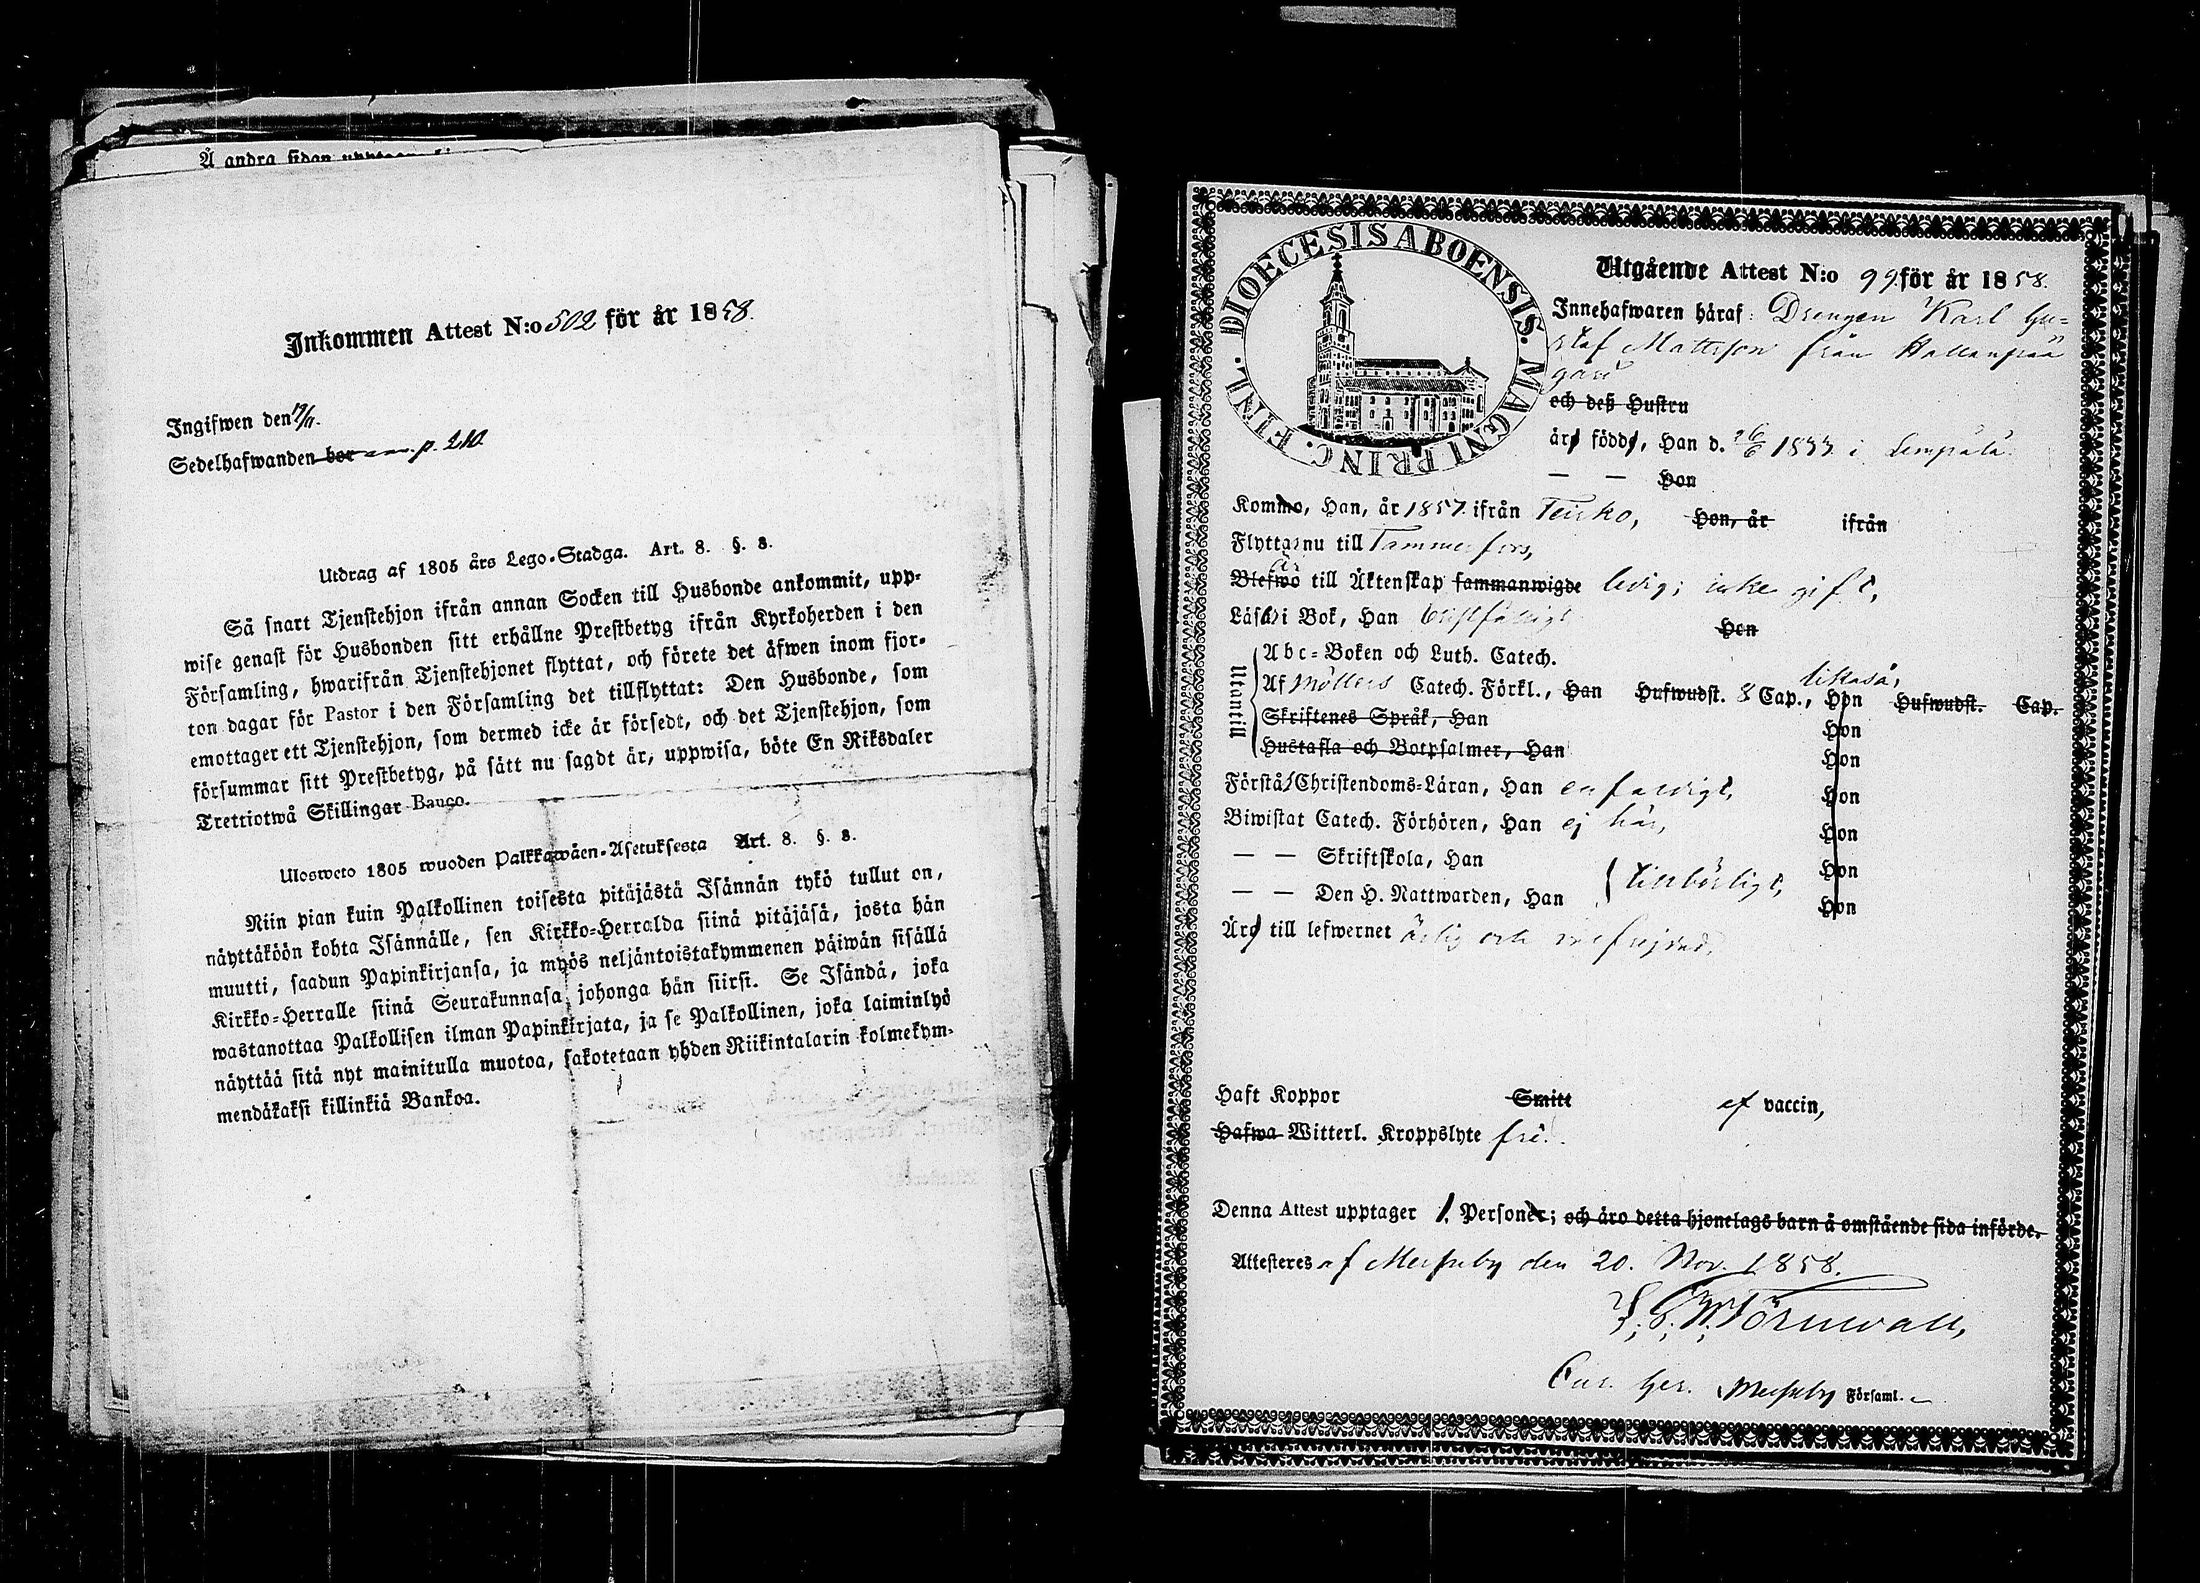 Å andra sidan upptagen
Inkommen Attest N:o 502 för år 1858.
Ingifwen den
Sedelhafwanden bor p. 210
Utdrag af 1805 års Lego-Stadga. Art. 8. §. 8.
Så snart Tjenstehjon ifrån annan Socken till Husbonde ankommit, upp-
wise genast för Husbonden sitt erhållne Prestbetyg ifrån Kyrkoherden i den
Församling, hwarifrån Tjenstehjonet flyttat, och förete det äfwen inom fjor-
ton dagar för Pastor i den Församling det tillflyttat: Den Husbonde, som
emottager ett Tjenstehjon, som dermed icke är försedt, och det Tjenstehjon, som
försummar sitt Prestbetyg, på sätt nu sagdt är, uppwisa, böte En Riksdaler
Trettiotwå Skillingar Banco.
Ulosweto 1805 wuoden Palkkawäen-Asetuksesta Art. 8. §. 8.
Niin pian kuin Palkollinen toisesta pitäjästä Isännän tykö tullut on,
näyttäköön kohta Isännälle, sen Kirkko-Herralda siinä pitäjäsä, josta hän
muutti, saadun Papinkirjansa, ja myös neljäntoistakymmenen päiwän sisällä
Kirkko-Herralle siinä Seurakunnasa johonga hän siirsi. Se Isändä, joka
wastanottaa Palkollisen ilman Papinkirjata, ja se Palkollinen, joka laiminlyö
näyttää sitä nyt mainitulla muotoa, sakotetaan yhden Riikintalarin kolmekym-
mendäkaksi killinkiä Bankoa.
DIOECESIS ABOENSIS. MAGNI PRINC. FINL.
Utgående Attest N:o 99. för år 1858.
Innehafwaren häraf: Drengen Karl Gu=
staf Mattsson från
gård
och deß Hustru
äro födde, Han d. 26/6 1833 i Lempälä.
— — Hon
Kommo, Han, år 1857. ifrån Teisko, Hon, år ifrån
Flytta nu till Tammerfors,
är
Blefwo till Äktenskap sammanwigde ledig; icke gift,
Läsa i Bok, Han Hon
Utantill
Abc-Boken och Luth. Catech.
Af Möllers Catech. Förkl., Han Hufwudst. 8 Cap., Hon Hufwudst. Cap.
Skriftenes Språk, Han Hon
Hustafla och Botpsalmer, Han Hon
Förstå Christendoms-Läran, Han enfaldigt, Hon
Biwistat Catech. Förhören, Han ej här, Hon
— — Skriftskola, Han Hon
— — Den H. Nattwarden, Han tillbörligt, Hon
Äro till lefwernet ärlig och
Haft Koppor Smitt af vaccin,
Hafwa Witterl. Kroppslyte fri.
Denna Attest upptager 1. Personer; och äro detta hjonelags barn å omstående sida införde.
Attesteres af Messuby den 20. Nov. 1858.
F. G. W. Törnwall,
Cur. Ger. Messuby Församl.